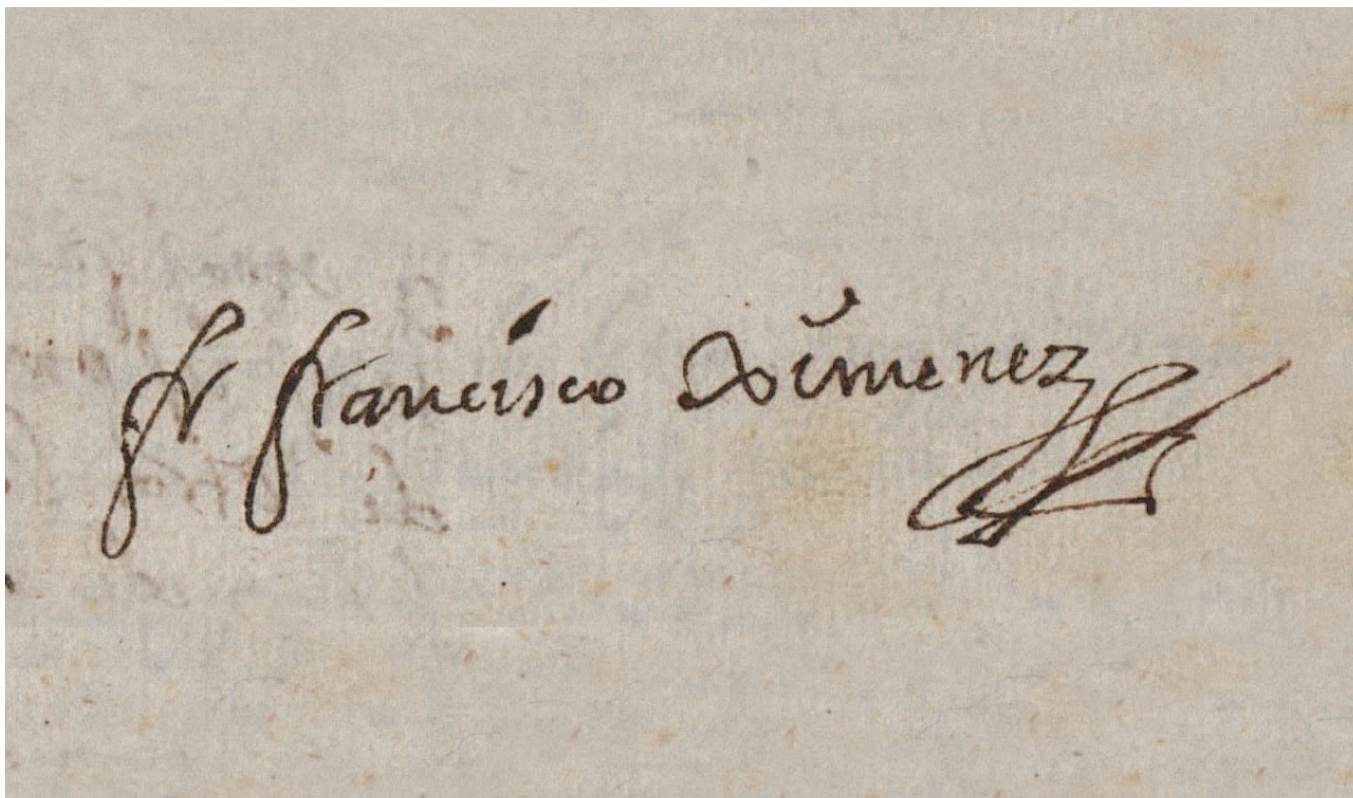 fr francisco Ximenez